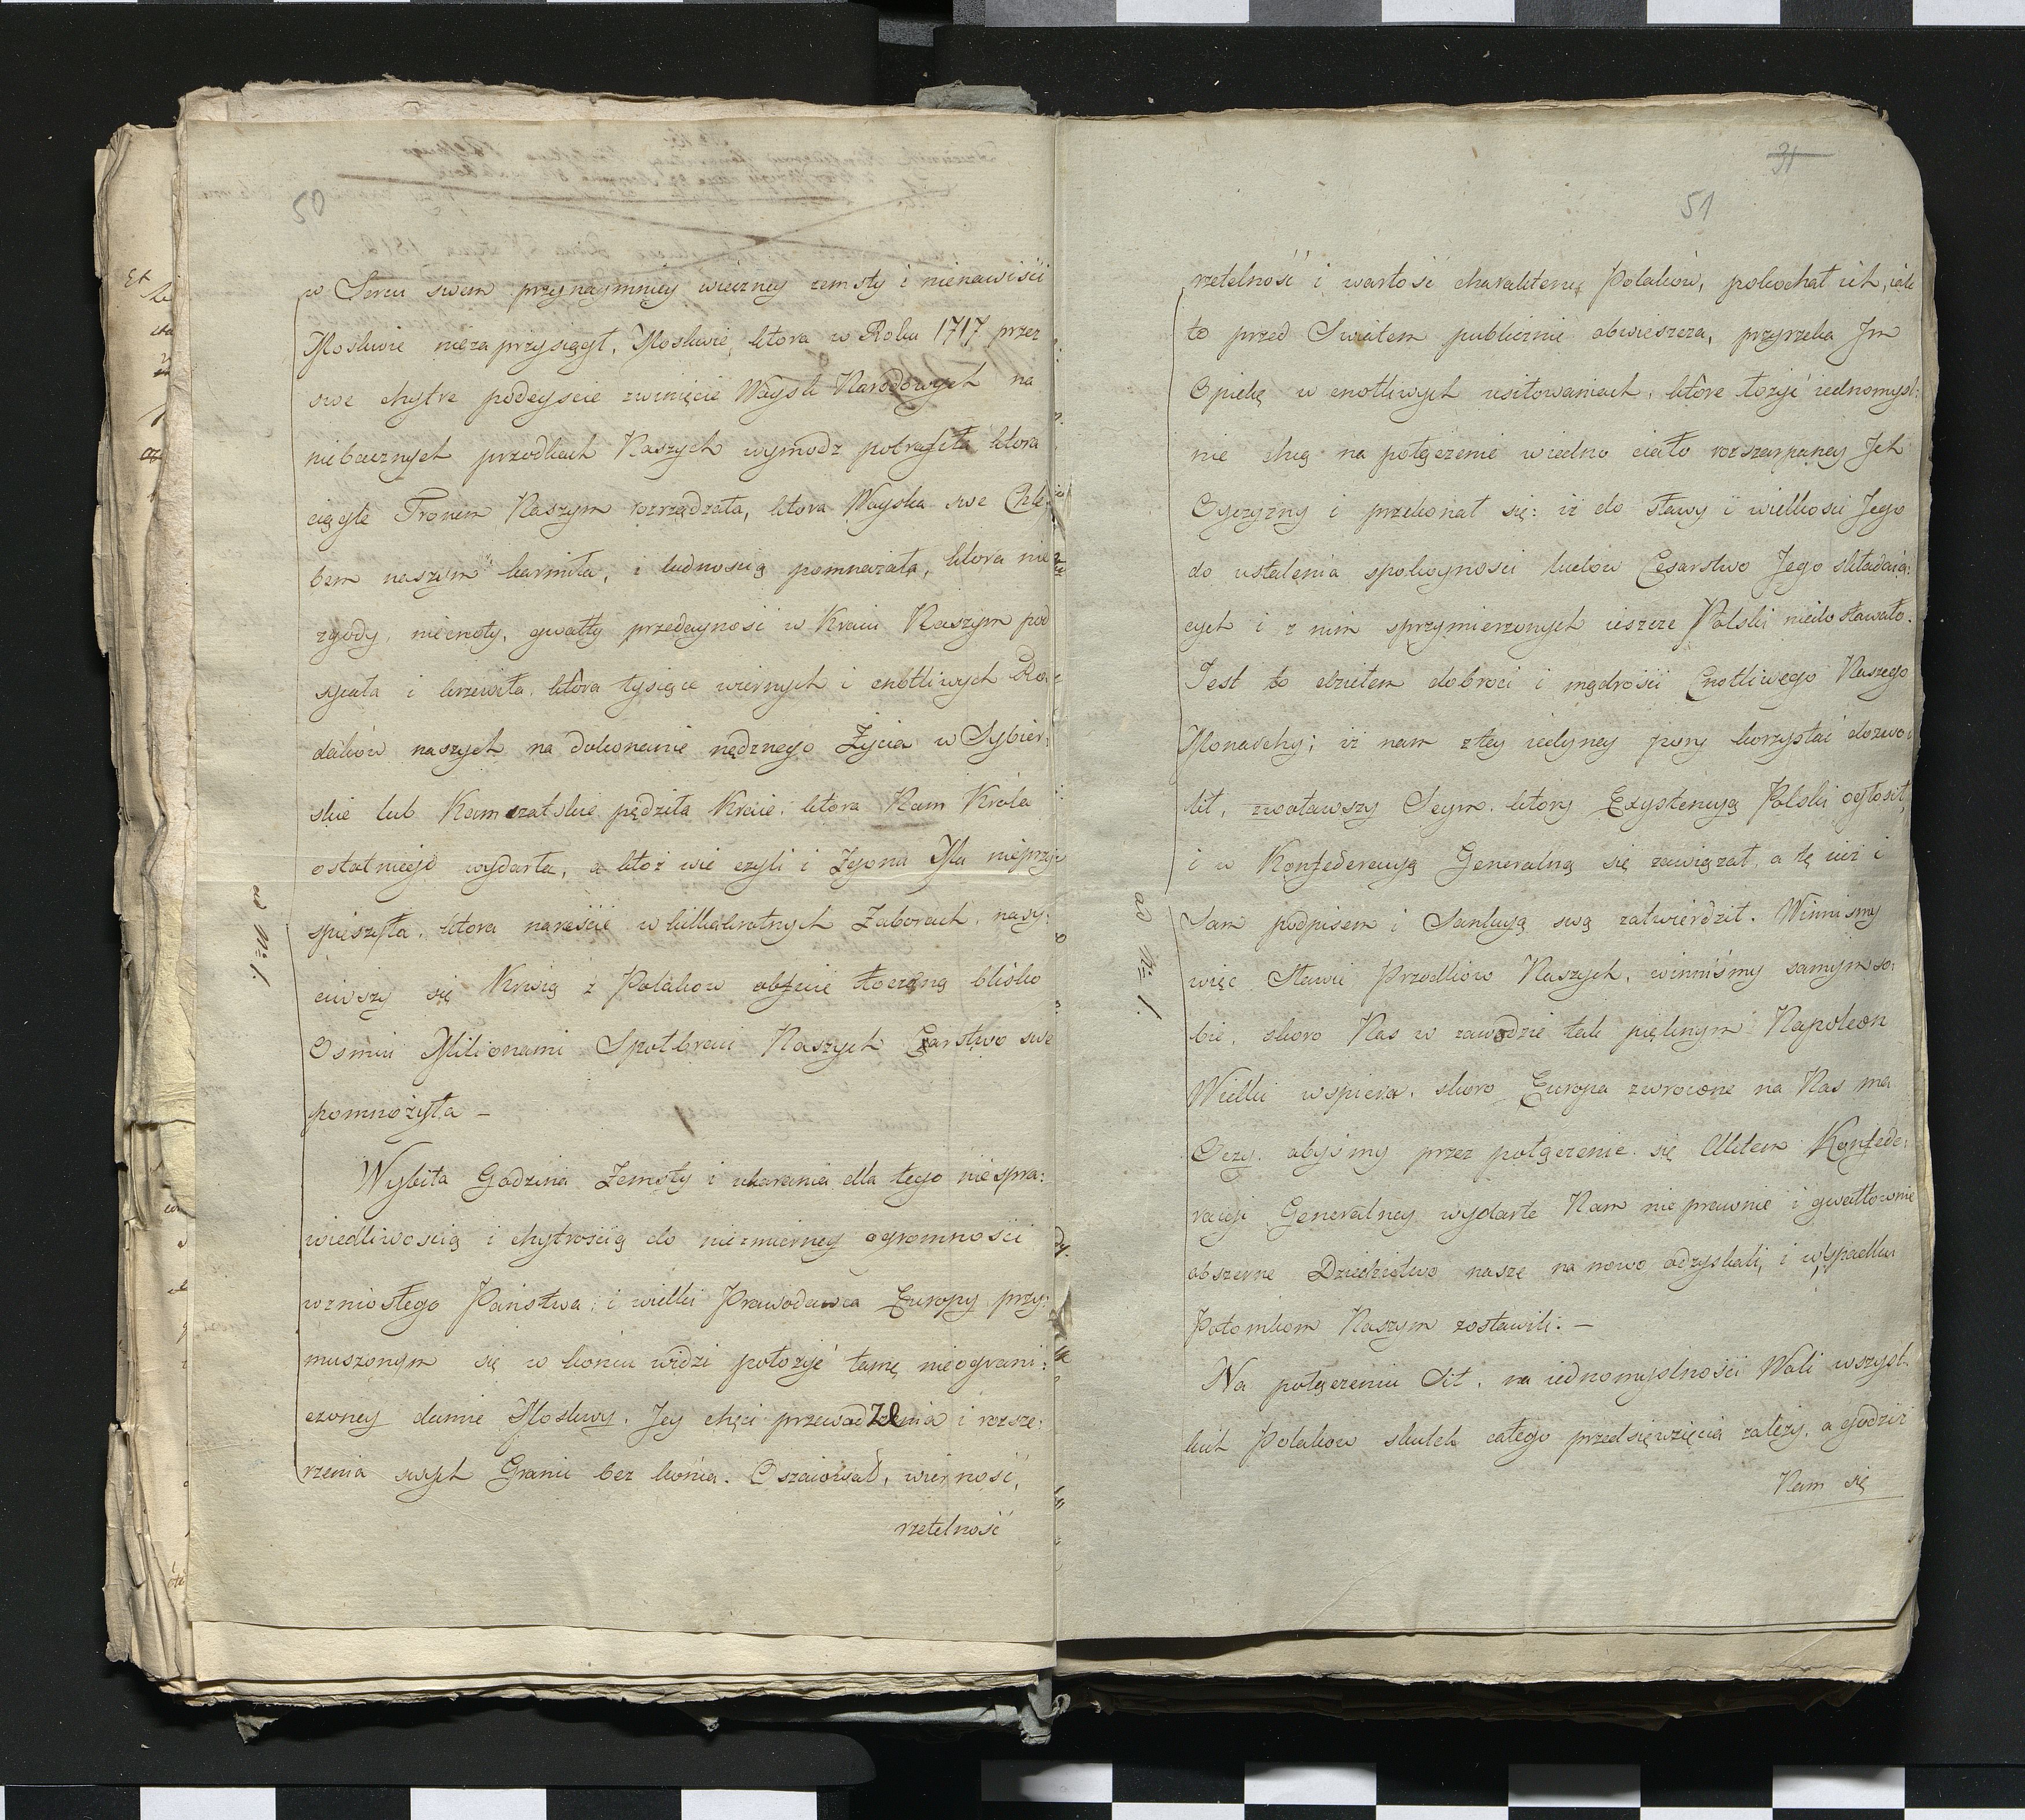 50
w Sercu swem przynaymniey wieczney zemsty i nienawiści
Moskwie niezaprzysięgł, Moskwie, ktora w Roku 1717 przez
swe chytre podeyście zwinięcie Woysk Narodowych na
niebacznych przodkach Naszych wymodz potrafiła ktora
ciągle Tronem Naszym rozrządzała, ktora Woyska swe Chle:
bem naszym karmiła, i ludnością pomnażała, ktora nie
zgody, niecnoty, gwałty przedayność w Kraiu Naszym pod
sycała i krzewiła, ktôra tysiące wiernych i cnotliwych Ro:
daków naszych na dokonanie nędznego Życia w Sybier:
skie lub Kamczatskie pędziła Kraie, ktora Nam Króla
ostatniego wydarła, a ktoż wie czyli i Zgonu Mu nieprzy:
spieszyła, ktora nareście w kilkakrotnych Zaborach, nasy:
ciwszy się Krwią z Polakow obficie toczoną blisko
Osmiu Milionami Społbraci Naszych Carstwo swe
pomnożyła –
Wybiła Godzina Zemsty i ukarania dla tego niespra:
wiedliwością i chytrością do niezmierney ogromności
wzniosłego Państwa, i wielki Prawodawca Europy przy:
muszonym się w końcu widzi położyć tamę nieograni:
czoney dumie Moskwy, Jey chęci przewodzenia i rozsze:
rzenia swych Granic bez końca. Oszacował, wierność,
rzetelność
ad No 1.
31
51
rzetelność i wartość charakteru Polaków, pokochał ich, iak
to przed Swiatem publicznie obwieszcza, przyrzeka Jm
Opiekę w cnotliwych usiłowaniach, ktôre łożyć iednomyśl:
nie chcą na połączenie wiedno ciało rozszarpaney Jch
Oyczyzny i przekonał się: iż do sławy i wielkosci Jego
do ustalenia spokoyności ludow Cesarstwo Jego składaią:
cych i z nim sprzymierzonych ieszcze Polski niedostawało.
Jest to dziełem dobroci i mądrości Cnotliwego Naszego
Monarchy; iż nam z tey iedyney pory korzystać dozwo:
lił, zwoławszy Seym, ktory Exystencyą Polski ogłosił,
i w Konfederacyą Generalną się zawiązał, a tę iuż i
Sam podpisem i Sankcyą swą zatwierdził. Winnismy
więc Sławie Przodków Naszych, winniśmy samym so:
bie, skoro Nas w zawodzie tak pięknym Napoleon
Wielki wspiera, skoro Europa zwrocone na Nas ma
Oczy, abyśmy przez połączenie się Aktem Konfede:
racyi Generalney wydarte Nam nieprawnie i gwałtownie
obszerne Dziedzictwo nasze na nowo odzyskali, i w spadku
Potomkom Naszym zostawili. –
Na połączeniu Sił, na iednomyślności Woli wszyst
kich Polakow skutek całego przedsięwzięcia zależy, a godzisz
Nam się
ad No 1.